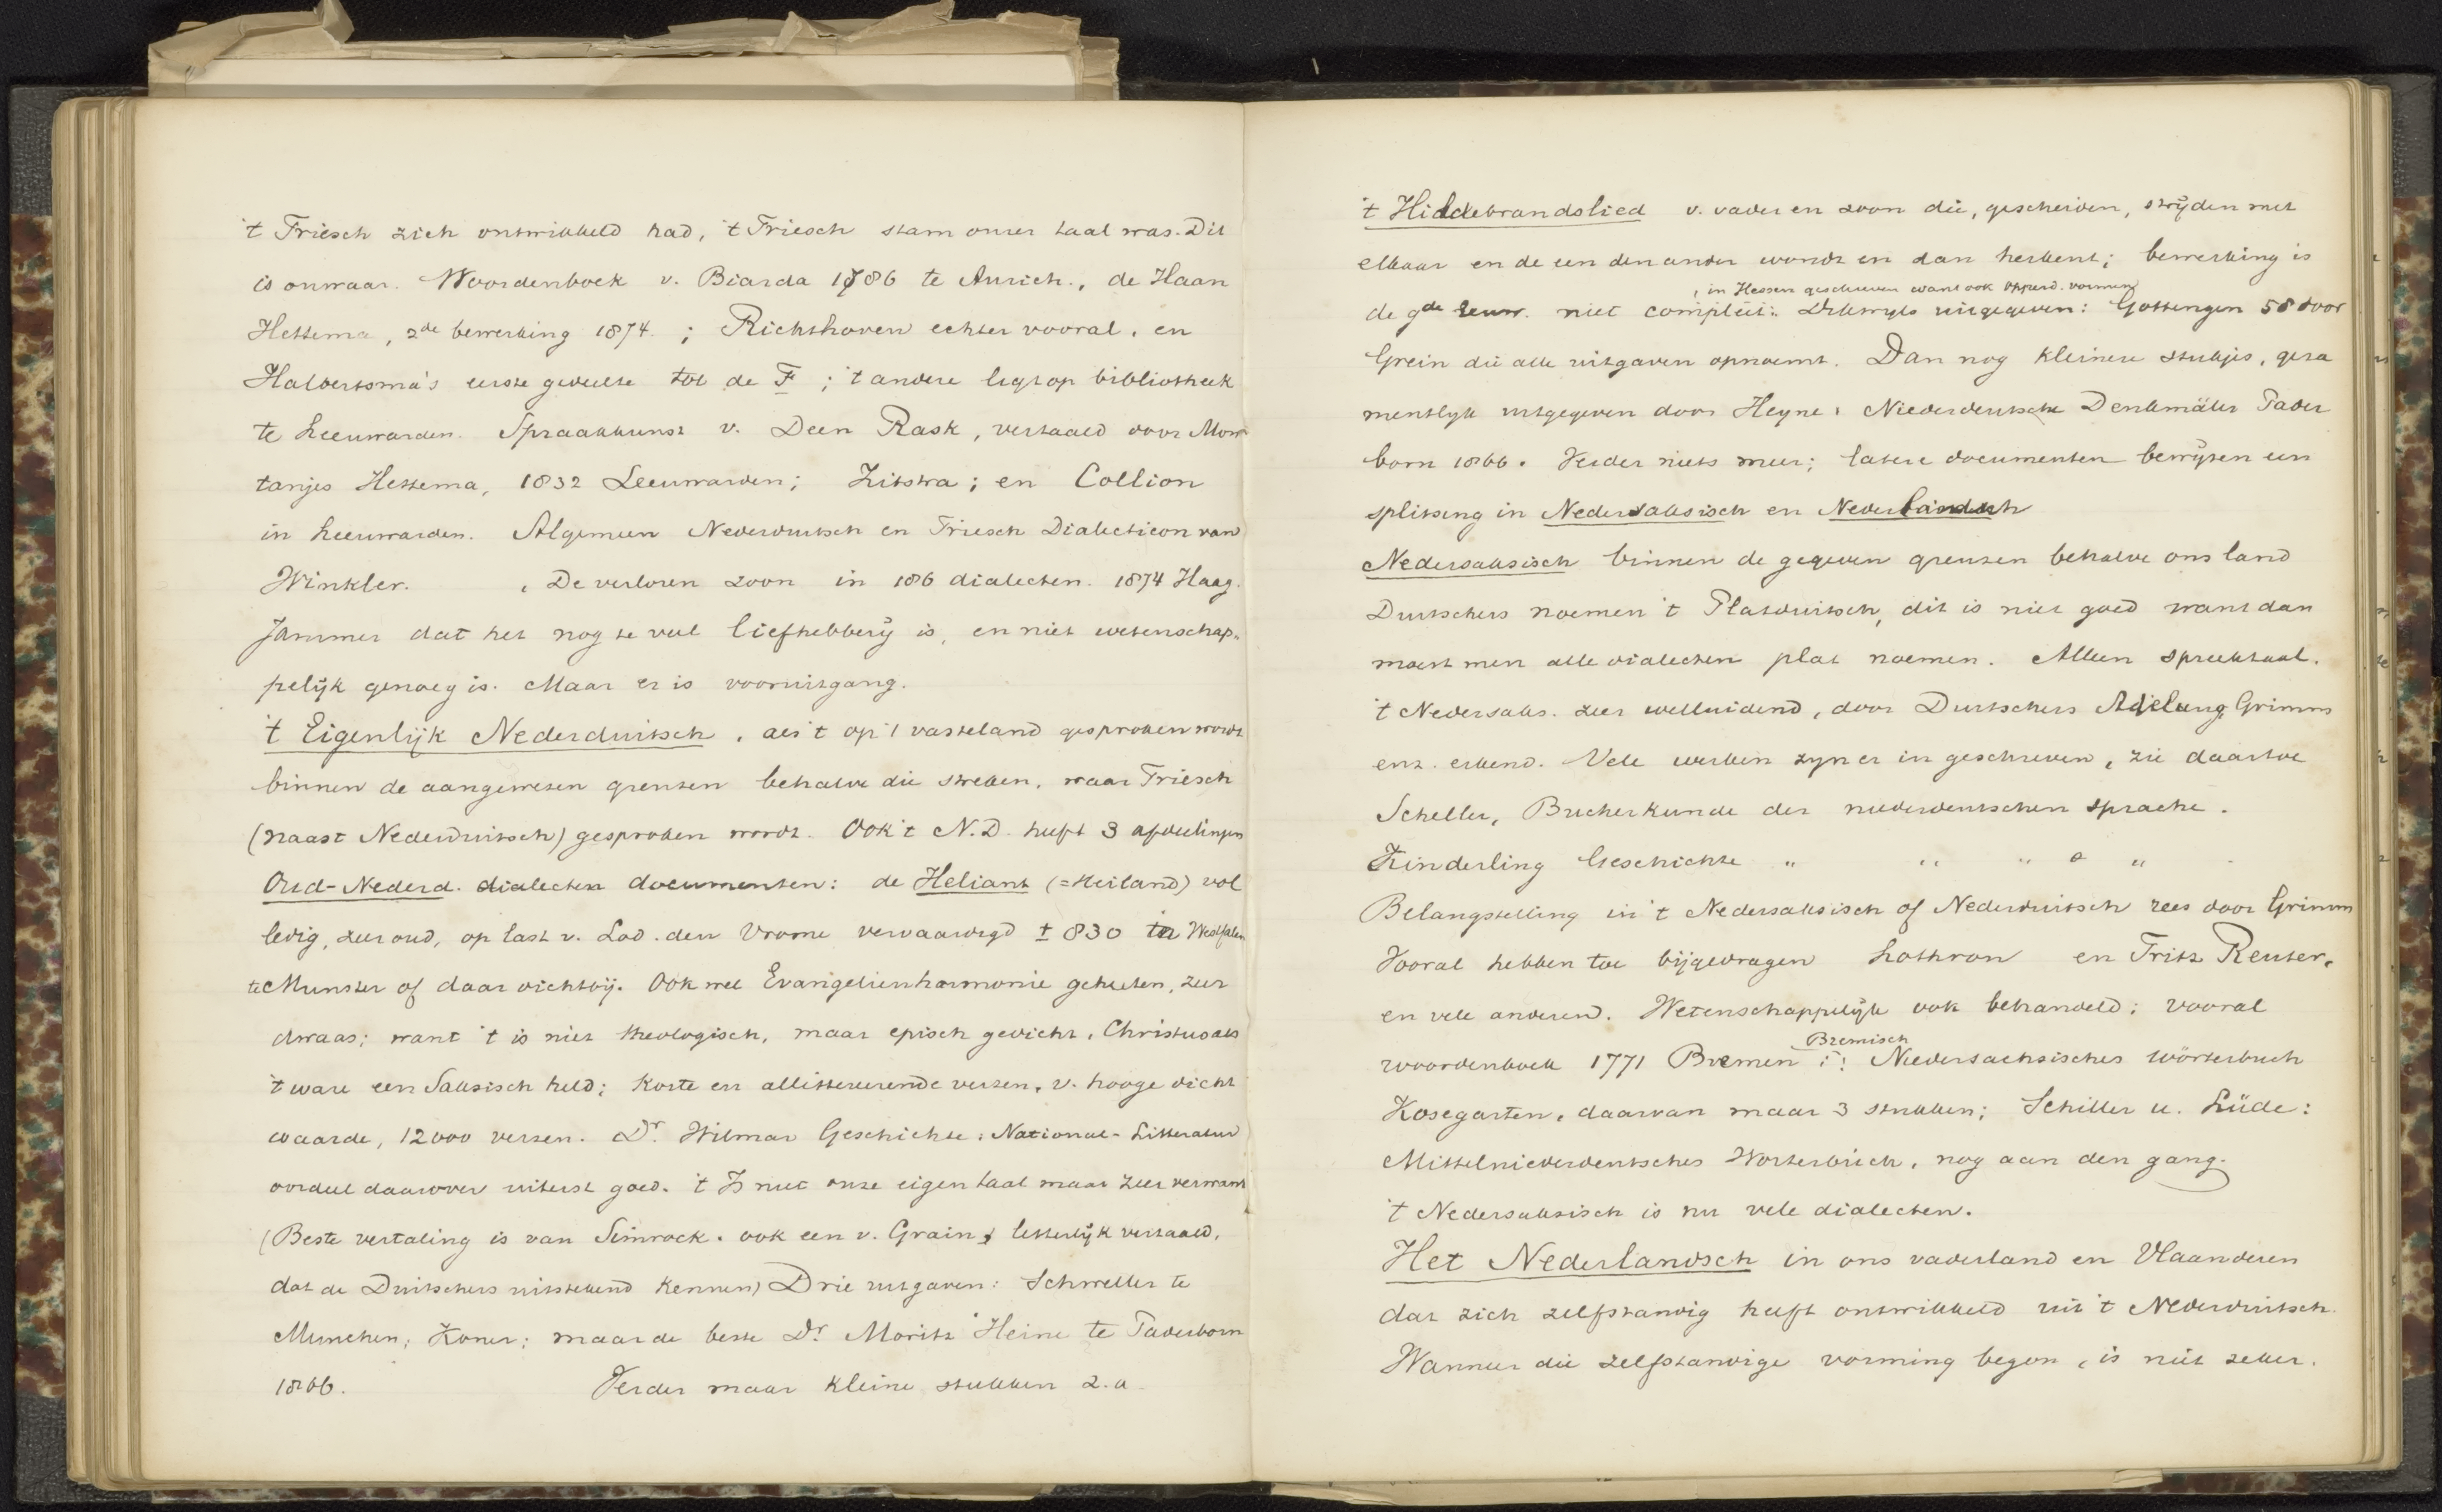 't Friesch zich ontwikkeld had, 't Friesch stam onzer taal was. Dit
is onwaar. Woordenboek v. Biarda 1786 te Aurich., de Haan
Hettema, 2de bewerking 1874. ; Richthoven echter vooral, en
Halbertsma's eerste gedeelte tot de F ; 't andere ligt op bibliotheek
te Leeuwarden. Spraakkunst v. Deen Rask, vertaald door Mon
tanjes Hettema, 1832 Leeuwarden; Zitstra; en Collion
in Leeuwarden. Algemeen Nederduitsch en Friesch Dialecticon van
Winkler. , De verloren zoon in 186 dialecten. 1874 Haag.
Jammer dat het nog te veel liefhebberij is, en niet wetenschap„
pelijk genoeg is. Maar er is vooruitgang.
't Eigenlijk Nederduitsch, als 't op 't vasteland gesproken wordt
binnen de aangewezen grenzen behalve die streken, waar Friesch
(naast Nederduitsch) gesproken wordt. Ook 't N.D. heeft 3 afdeelingen
Oud-Nederd. dialecten documenten: de Heliant (=Heiland) vol
ledig, zeer oud, op last v. Lod. den Vrome vervaardigd ± 830 in Westfalen
te Munster of daar dichtbij. Ook wel Evangelienharmonie geheeten, zeer
dwaas; want 't is niet theologisch, maar episch gedicht, Christus als
't ware een Saksisch held; korte en allittererende verzen, v. hooge dicht
waarde, 12000 verzen. Dr. Wilmar Geschichte: National-Litteratur
oordeel daarover uiterst goed. 't Is niet onze eigen taal maar zeer verwant
(Beste vertaling is van Simrock. ook een v. Grain, letterlijk vertaald,
dat de Duitschers uitstekend kennen) Drie uitgaven: Schmeller te
Munchen; Koner; maar de beste Dr Moritz Heine te Paderborn
1866. Verder maar kleine stukken z.a.
't Hildebrandslied v. vader en zoon die, gescheiden, strijden met
elkaar en de een den ander wondt en dan herkent; bewerking is
, in Hessen geschreven want ook Opperd. vormen
de 9de eeuw. niet compleet: Dikwyls uitgegeven: Gottingen 58 door
Grein die alle uitgaven opnoemt. Dan nog kleinere stukjes, geza
mentlyk uitgegeven door Heyne: Niederdeutsche Denkmäler Pader
born 1866. Verder niets meer; latere documenten bewijzen een
splitsing in Nedersaksisch en Nederlandsch
Nedersaksisch binnen de gegeven grenzen behalve ons land
Duitschers noemen 't Platduitsch, dit is niet goed want dan
moest men alle dialecten plat noemen. Alleen spreektaal.
't Nedersaks. zeer welluidend, door Duitschers Adelung, Grimm
enz. erkend. Vele werken zyn er in geschreven, zie daartoe
Scheller, Bucherkunde der niederdeutschen sprache.
Kinderling Geschichte „ „ „ „
Belangstelling in 't Nedersaksisch of Nederduitsch rees door Grimm
Vooral hebben toe bijgedragen Lothron en Fritz Reuter,
en vele anderen. Wetenschappelijk ook behandeld; vooral
Bremisch
woordenboek 1771 Bremen : Niedersachsisches Wörterbuch
Kosegarten, daarvan maar 3 stukken; Schiller u. Lüde:
Mittelniederdeutsches Worterbuch, nog aan den gang.
't Nedersaksisch is nu vele dialecten.
Het Nederlandsch in ons vaderland en Vlaanderen
dat zich zelfstandig heeft ontwikkeld uit 't Nederduitsch.
Wanneer die zelfstandige vorming begon, is niet zeker.